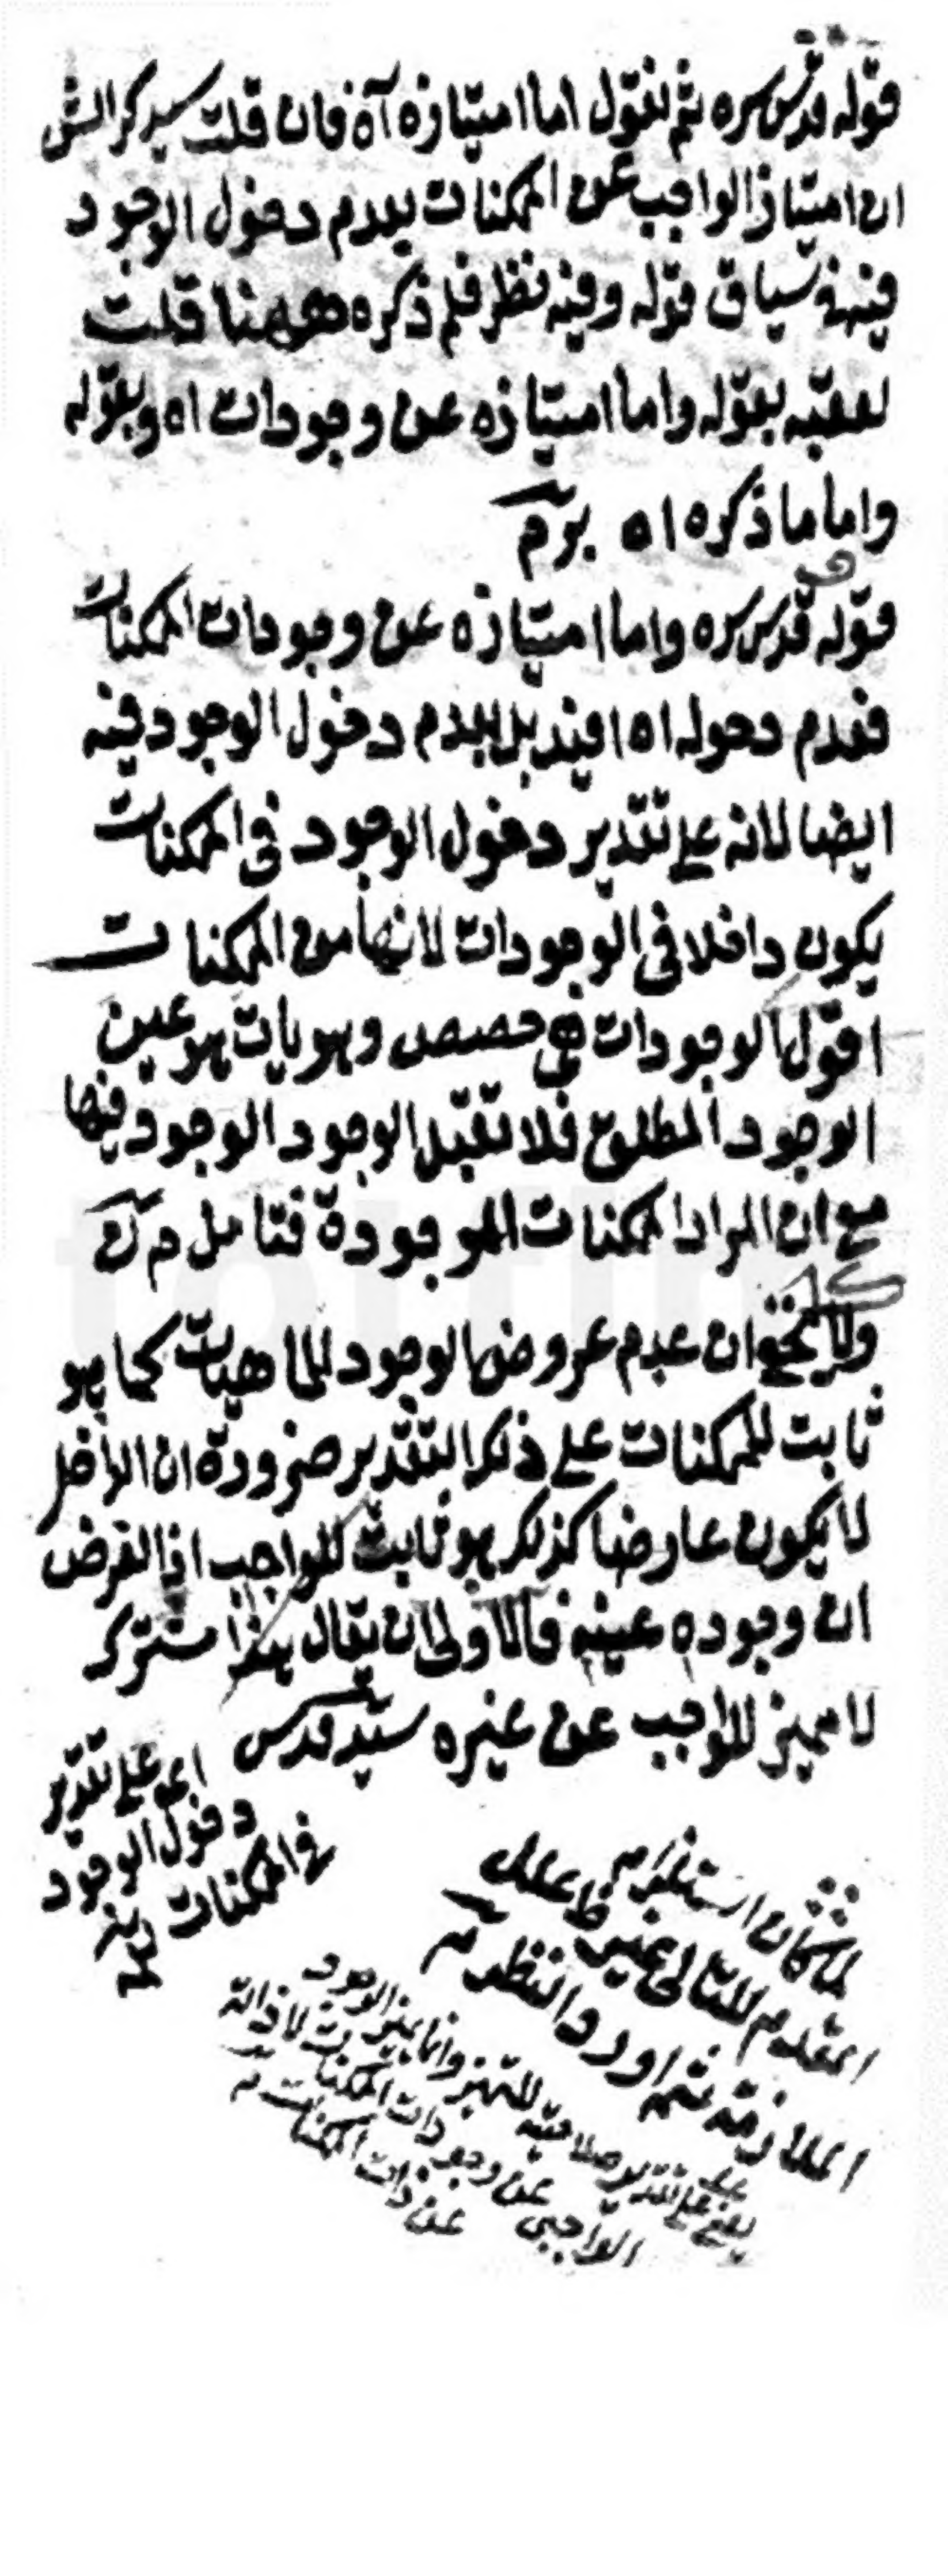 قوله قدس سره ثم نقول اما امتيازه آه فان قلت سيذكر الش
ان امتياز الواجب عن الممكنات بعدم دخول الوجود
فيه في سياق قوله وفيه نظر فلم ذكره ههنا قلت
لعقبه بقوله واما امتيازه عن وجودات اه وبقوله
واما ما ذكره اه
قوله قدس سره واما امتيازه عن وجودات الممكنات
فعدم دخوله اه افيد بل بعدم دخول الوجود فيه
ايضا لانه على تقدير دخول الوجود في الممكنات
يكون داخلا في الوجودات لانها من الممكنات
اقول الوجودات هي حصص وهويات هو عين
الوجود المطلق فلا تقبل الوجود الوجود فيها
مع ان المراد الممكنات الموجودة فتامل
ولا يخفى ان عدم عروض الوجود للماهيات كما هو
ثابت للممكنات على ذلك التقدير ضرورة ان الداخل
لا يكون عارضا كذلك هو ثابت للواجب اذ الفرض
ان وجوده عينه فالاولى ان يقال هذا مشترك
لا مميز للواجب عن غيره سيد قدس
اي على تقدير
دخول الوجود
في الممكنات
لما كان استلزام
المقدم للتالي غير
الملازمة ثم اورد النظر
يعني على تقدير
الواجب عن وجودات الممكنات لا ذاته
عن ذات الممكنات